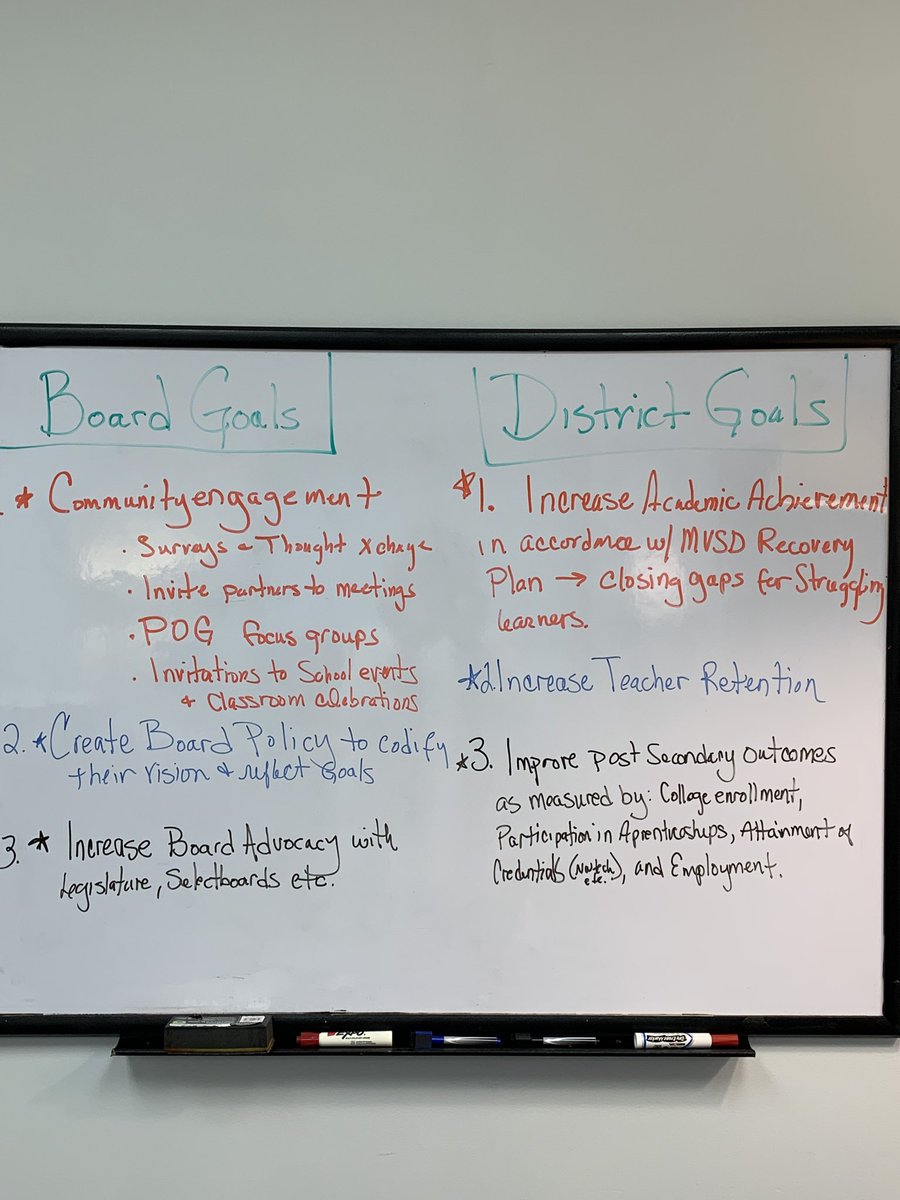 Board Goals
. * Community engagement
· Surveys & Thought Xchage
· Invite partners to meetings
· POG focus groups
· Invitations to School events
& Classroom celebrations
2. * Create Board Policy to codify
their vision & reflect Goals
3. * Increase Board Advocacy with
Legislature, Selectboards etc.
District Goals
*1. Increase Academic Achievement
in accordance w/ MVSD Recovery
Plan → closing gaps for Struggling
learners.
*2. Increase Teacher Retention
*3. Improve post Secondary outcomes
as measured by: College enrollment,
Participation in Aprenticeships, Attainment of
Credentials (
etc.), and Employment.
EXPO